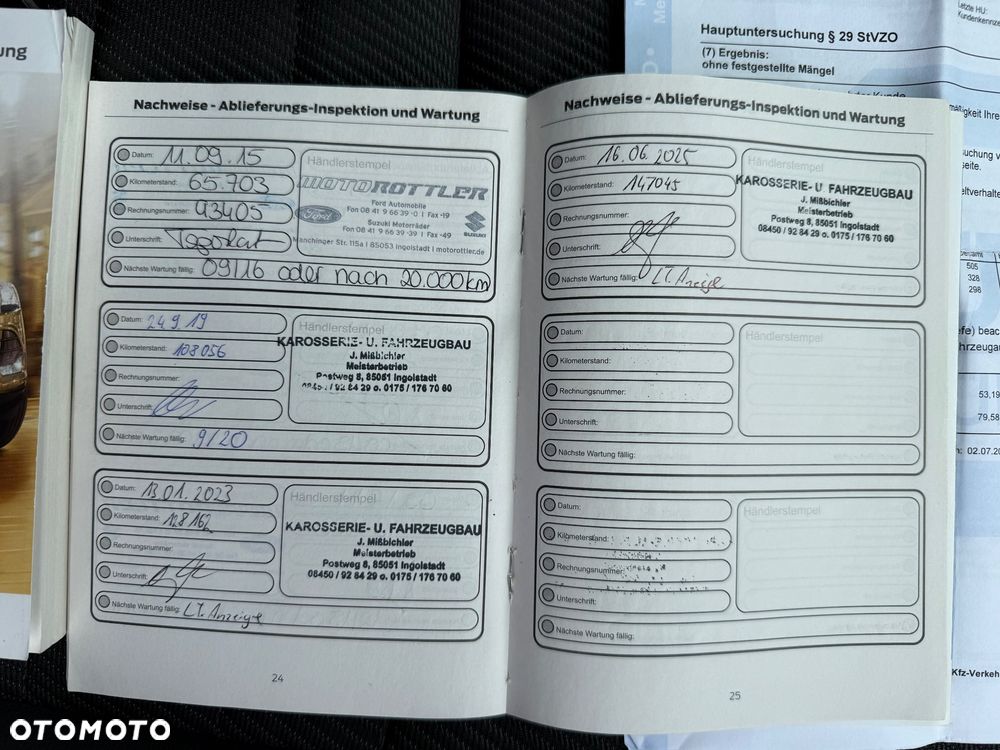 ung
Nachweise - Ablieferungs-Inspektion und Wartung
Datum: 11.09.15
Kilometerstand: 65.703
Rechnungsnummer: 43405
Unterschrift:
Nächste Wartung fällig: 09/16 oder nach 20.000km
Händlerstempel
MOTOROTTLER
Ford Automobile
Fon 08 41 9 66 39 -0 | Fax -19
Suzuki Motorräder
Fon 08 41 9 66 39 -39 | Fax -49
Ford
SUZUKI
Manchinger Str. 115a | 85053 Ingolstadt | motorottler.de
Datum: 24.9.19
Kilometerstand: 108056
Rechnungsnummer:
Unterschrift:
Nächste Wartung fällig: 9/20
Händlerstempel
KAROSSERIE- U. FAHRZEUGBAU
J. Mißbichler
Meisterbetrieb
Postweg 8, 85051 Ingolstadt
08450 / 92 84 29 o. 0175 / 176 70 60
Datum: 13.01.2023
Kilometerstand: 128162
Rechnungsnummer:
Unterschrift:
Nächste Wartung fällig: LT. Anzeige
Händlerstempel
KAROSSERIE- U. FAHRZEUGBAU
J. Mißbichler
Meisterbetrieb
Postweg 8, 85051 Ingolstadt
08450 / 92 84 29 o. 0175 / 176 70 60
24
Nachweise - Ablieferungs-Inspektion und Wartung
Datum: 16.06.2025
Kilometerstand: 147045
Rechnungsnummer:
Unterschrift:
Nächste Wartung fällig: LT. Anzeige
Händlerstempel
KAROSSERIE- U. FAHRZEUGBAU
J. Mißbichler
Meisterbetrieb
Postweg 8, 85051 Ingolstadt
08450 / 92 84 29 o. 0175 / 176 70 60
Datum:
Kilometerstand:
Rechnungsnummer:
Unterschrift:
Nächste Wartung fällig:
Händlerstempel
Datum:
Kilometerstand:
Rechnungsnummer:
Unterschrift:
Nächste Wartung fällig:
Händlerstempel
25
Letzte HU:
Hauptuntersuchung § 29 StVZO
(7) Ergebnis:
ohne festgestellte Mängel
505
328
298
53,19
79,58
02.07.20
Kfz-Verkeh
OTOMOTO